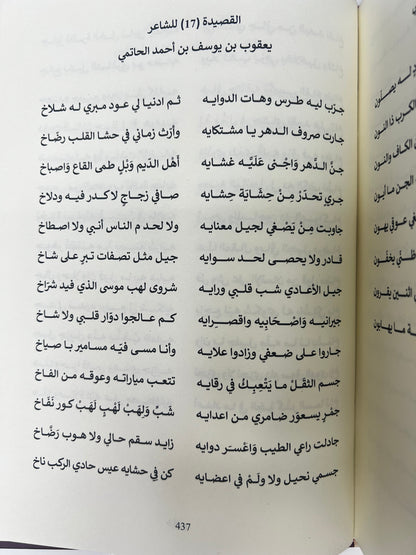 القصيدة (17) للشاعر
يعقوب بن يوسف بن أحمد الحاتمي
جزب ليه طرس وهات الدوايه ثم ادنيا لي عود مبري له شلاخ
جارت صروف الدهر يا مشتكايه وارث زماني في حشا القلب رضّاخ
جنّ الدّهر وَاجْنى عَلَيَّه غشايه أهْل الدّيم وَبْلٍ طمى القاع وَاصباخ
جري تحدّر مِنْ حِشايَة حِشايه صافي زجاجٍ لا كدر فيه ودلاخ
جاوبت مِنْ يَصْغي لجيل معنايه ولا لحد م الناس أنبي ولا اصطاخ
قادر ولا يحصى لحد سوايه جيل مثل تصفات تبر على شاخ
جيل الأعادي شب قلبي ورايه شروى لهب موسى الذي فيد شرّاخ
جيرانيه وَاصْحابيه واقصرايه كم عالجوا دوّار قلبي ولا شاخ
جاروا على ضعفي وزادوا علايه وأنا مسى فيّه مسامير با صياخ
جسم الثقْلْ ما يَتْعِبكْ في رقايه تتعب مياراته وعوقه من الفاخ
جمْرٍ يسعوَر ضامري من اعدايه شَبّ وَلِهَبْ لَهْبٍ لَهَبْ كور نَفّاخ
جادلت راعي الطيب وَاعْسَر دوايه زايد سقم حالي ولا هوب رَضّاخ
جسمي نحيل ولا ولَمْ في اعضايه كن في حشايه عيس حادي الركب ناخ
437
له يصلّون
الكرب ذا النون
الكاف والنون
الجن ما ليون
في عوق يهون
ظنّي يخفون
التنين يقرون
ة ما يهابون